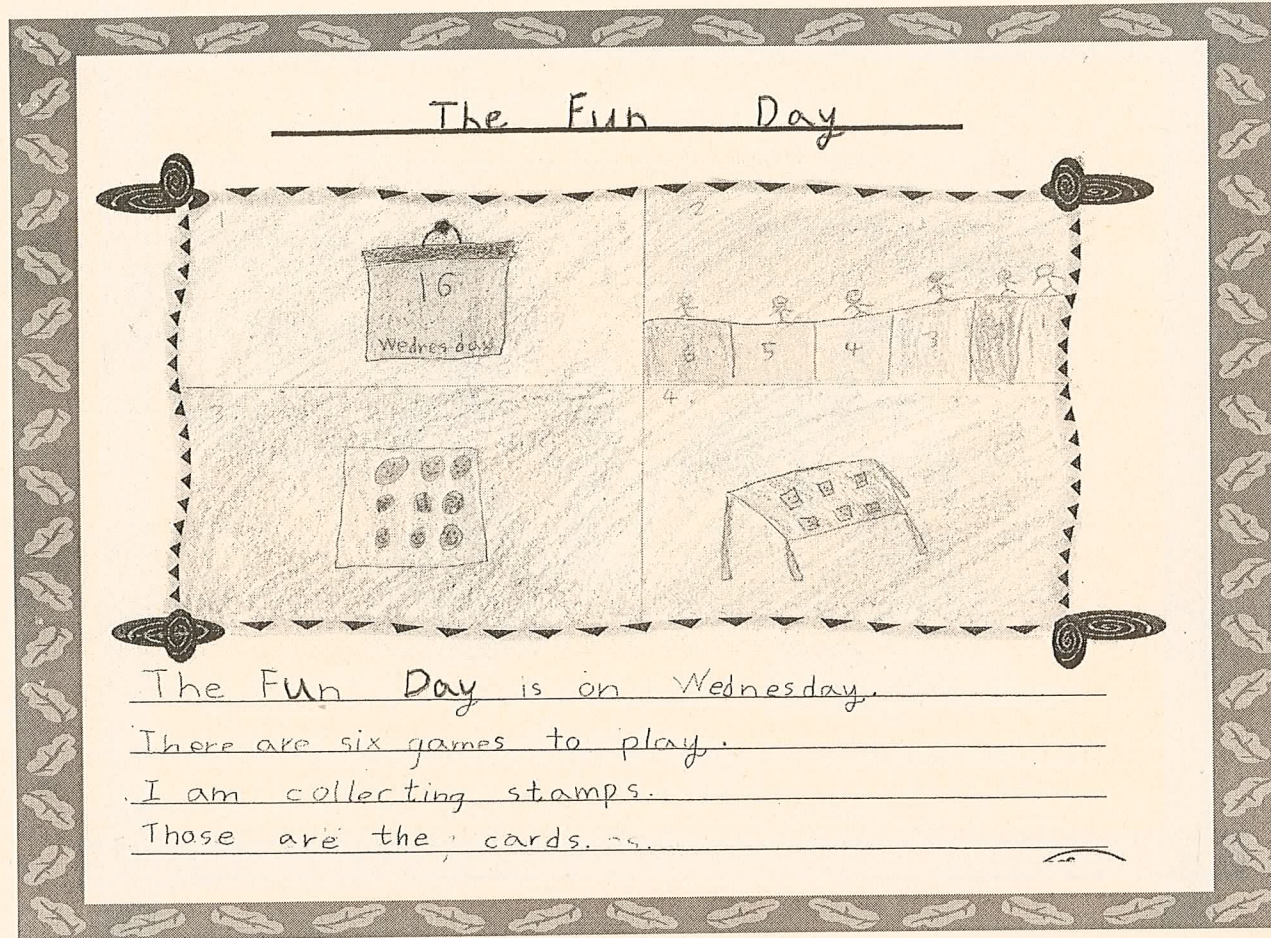 The Fun Day
1
2
16
Wednesday
6 5 4 3 1
3
4
The Fun Day is on Wednesday.
There are six games to play.
I am collecting stamps.
Those are the cards.